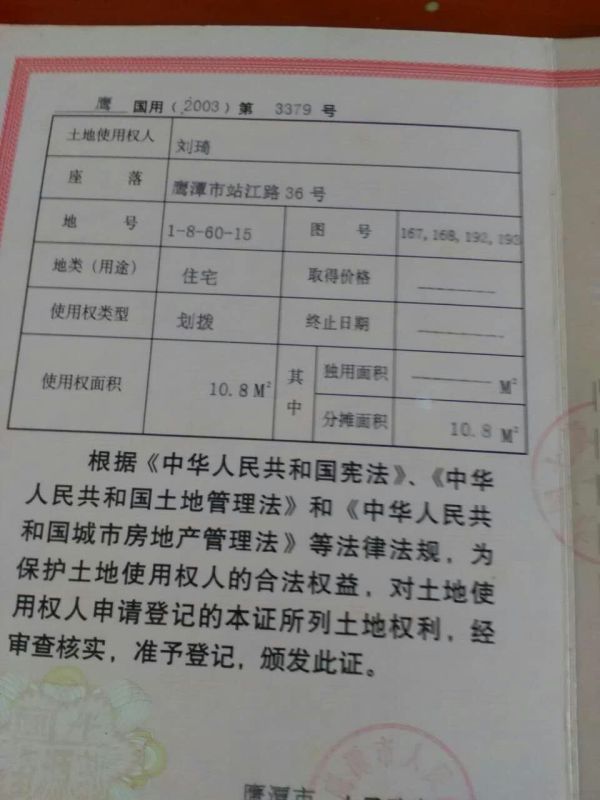 鹰 国用（2003）第 3379 号
土地使用权人 刘琦
座 落 鹰潭市站江路36号
地 号 1-8-60-15 图 号 167,168,192,193
地类（用途） 住宅 取得价格
使用权类型 划拨 终止日期
使用权面积 10.8 M² 其中 独用面积 M²
分摊面积 10.8 M²
根据《中华人民共和国宪法》、《中华
人民共和国土地管理法》和《中华人民共
和国城市房地产管理法》等法律法规，为
保护土地使用权人的合法权益，对土地使
用权人申请登记的本证所列土地权利，经
审查核实，准予登记，颁发此证。
鹰潭市 人民